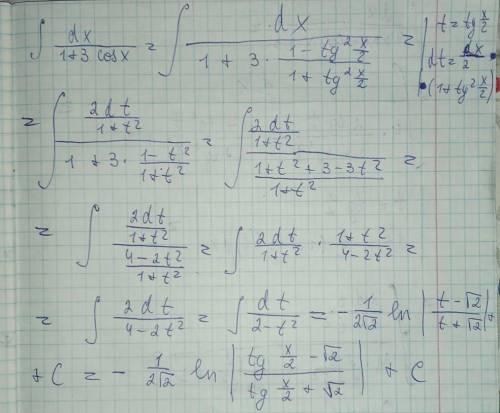 ∫ dx/(1+3 cosx) = ∫ dx/(1 + 3 · (1-tg² x/2)/(1+tg² x/2)) = | t = tg x/2
dt = dx/2 ·
· (1+tg² x/2) |
= ∫ (2dt/(1+t²))/(1 + 3 · (1-t²)/(1+t²)) = ∫ (2dt/(1+t²))/((1+t²+3-3t²)/(1+t²)) =
= ∫ (2dt/(1+t²))/((4-2t²)/(1+t²)) = ∫ 2dt/(1+t²) · (1+t²)/(4-2t²) =
= ∫ 2dt/(4-2t²) = ∫ dt/(2-t²) = - 1/(2√2) ln |(t-√2)/(t+√2)| +
+ C = - 1/(2√2) ln |(tg x/2 - √2)/(tg x/2 + √2)| + C